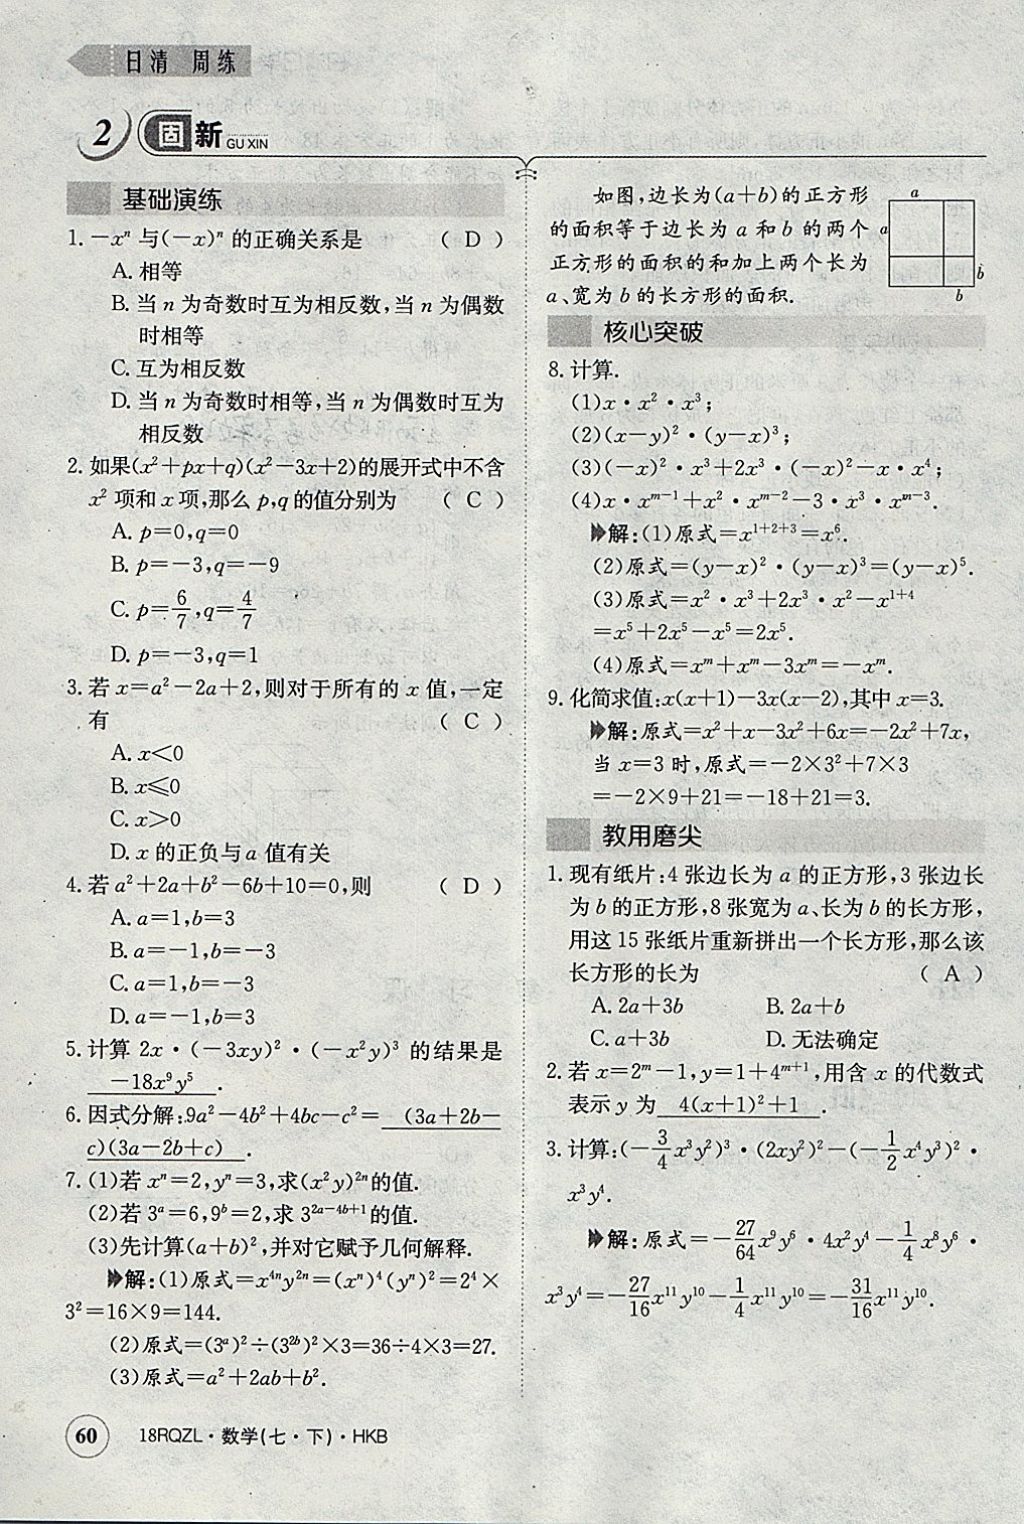 日清 周练
2 固新 GU XIN
基础演练
1. －xⁿ 与(－x)ⁿ 的正确关系是 ( D )
A. 相等
B. 当 n 为奇数时互为相反数,当 n 为偶数
时相等
C. 互为相反数
D. 当 n 为奇数时相等,当 n 为偶数时互为
相反数
2. 如果(x²＋px＋q)(x²－3x＋2)的展开式中不含
x² 项和 x 项,那么 p,q 的值分别为 ( C )
A. p＝0,q＝0
B. p＝－3,q＝－9
C. p＝6/7,q＝4/7
D. p＝－3,q＝1
3. 若 x＝a²－2a＋2,则对于所有的 x 值,一定
有 ( C )
A. x＜0
B. x⩽0
C. x＞0
D. x 的正负与 a 值有关
4. 若 a²＋2a＋b²－6b＋10＝0,则 ( D )
A. a＝1,b＝3
B. a＝－1,b＝－3
C. a＝1,b＝－3
D. a＝－1,b＝3
5. 计算 2x·(－3xy)²·(－x²y)³ 的结果是
－18x⁹y⁵ .
6. 因式分解:9a²－4b²＋4bc－c²＝ (3a＋2b－
c)(3a－2b＋c) .
7. (1)若 xⁿ＝2,yⁿ＝3,求(x²y)²ⁿ的值.
(2)若 3ᵃ＝6,9ᵇ＝2,求 3²ᵃ⁻⁴ᵇ⁺¹的值.
(3)先计算(a＋b)²,并对它赋予几何解释.
解:(1)原式＝x⁴ⁿy²ⁿ＝(xⁿ)⁴(yⁿ)²＝2⁴×
3²＝16×9＝144.
(2)原式＝(3ᵃ)²÷(3²ᵇ)²×3＝36÷4×3＝27.
(3)原式＝a²＋2ab＋b².
如图,边长为(a＋b)的正方形
的面积等于边长为 a 和 b 的两个
正方形的面积的和加上两个长为
a、宽为 b 的长方形的面积.
a
a
b
b
核心突破
8. 计算.
(1)x·x²·x³;
(2)(x－y)²·(y－x)³;
(3)(－x)²·x³＋2x³·(－x)²－x·x⁴;
(4)x·xᵐ⁻¹＋x²·xᵐ⁻²－3·x³·xᵐ⁻³.
解:(1)原式＝x¹⁺²⁺³＝x⁶.
(2)原式＝(y－x)²·(y－x)³＝(y－x)⁵.
(3)原式＝x²·x³＋2x³·x²－x¹⁺⁴
＝x⁵＋2x⁵－x⁵＝2x⁵.
(4)原式＝xᵐ＋xᵐ－3xᵐ＝－xᵐ.
9. 化简求值:x(x＋1)－3x(x－2),其中 x＝3.
解:原式＝x²＋x－3x²＋6x＝－2x²＋7x,
当 x＝3 时,原式＝－2×3²＋7×3
＝－2×9＋21＝－18＋21＝3.
教用磨尖
1. 现有纸片:4 张边长为 a 的正方形,3 张边长
为 b 的正方形,8 张宽为 a、长为 b 的长方形,
用这 15 张纸片重新拼出一个长方形,那么该
长方形的长为 ( A )
A. 2a＋3b B. 2a＋b
C. a＋3b D. 无法确定
2. 若 x＝2ᵐ－1,y＝1＋4ᵐ⁺¹,用含 x 的代数式
表示 y 为 4(x＋1)²＋1 .
3. 计算:(－3/4x³y²)³·(2xy²)²－(－1/2x⁴y³)²·
x³y⁴.
解:原式＝－27/64x⁹y⁶·4x²y⁴－1/4x⁸y⁶·
x³y⁴＝－27/16x¹¹y¹⁰－1/4x¹¹y¹⁰＝－31/16x¹¹y¹⁰.
60 18RQZL·数学(七·下)·HKB